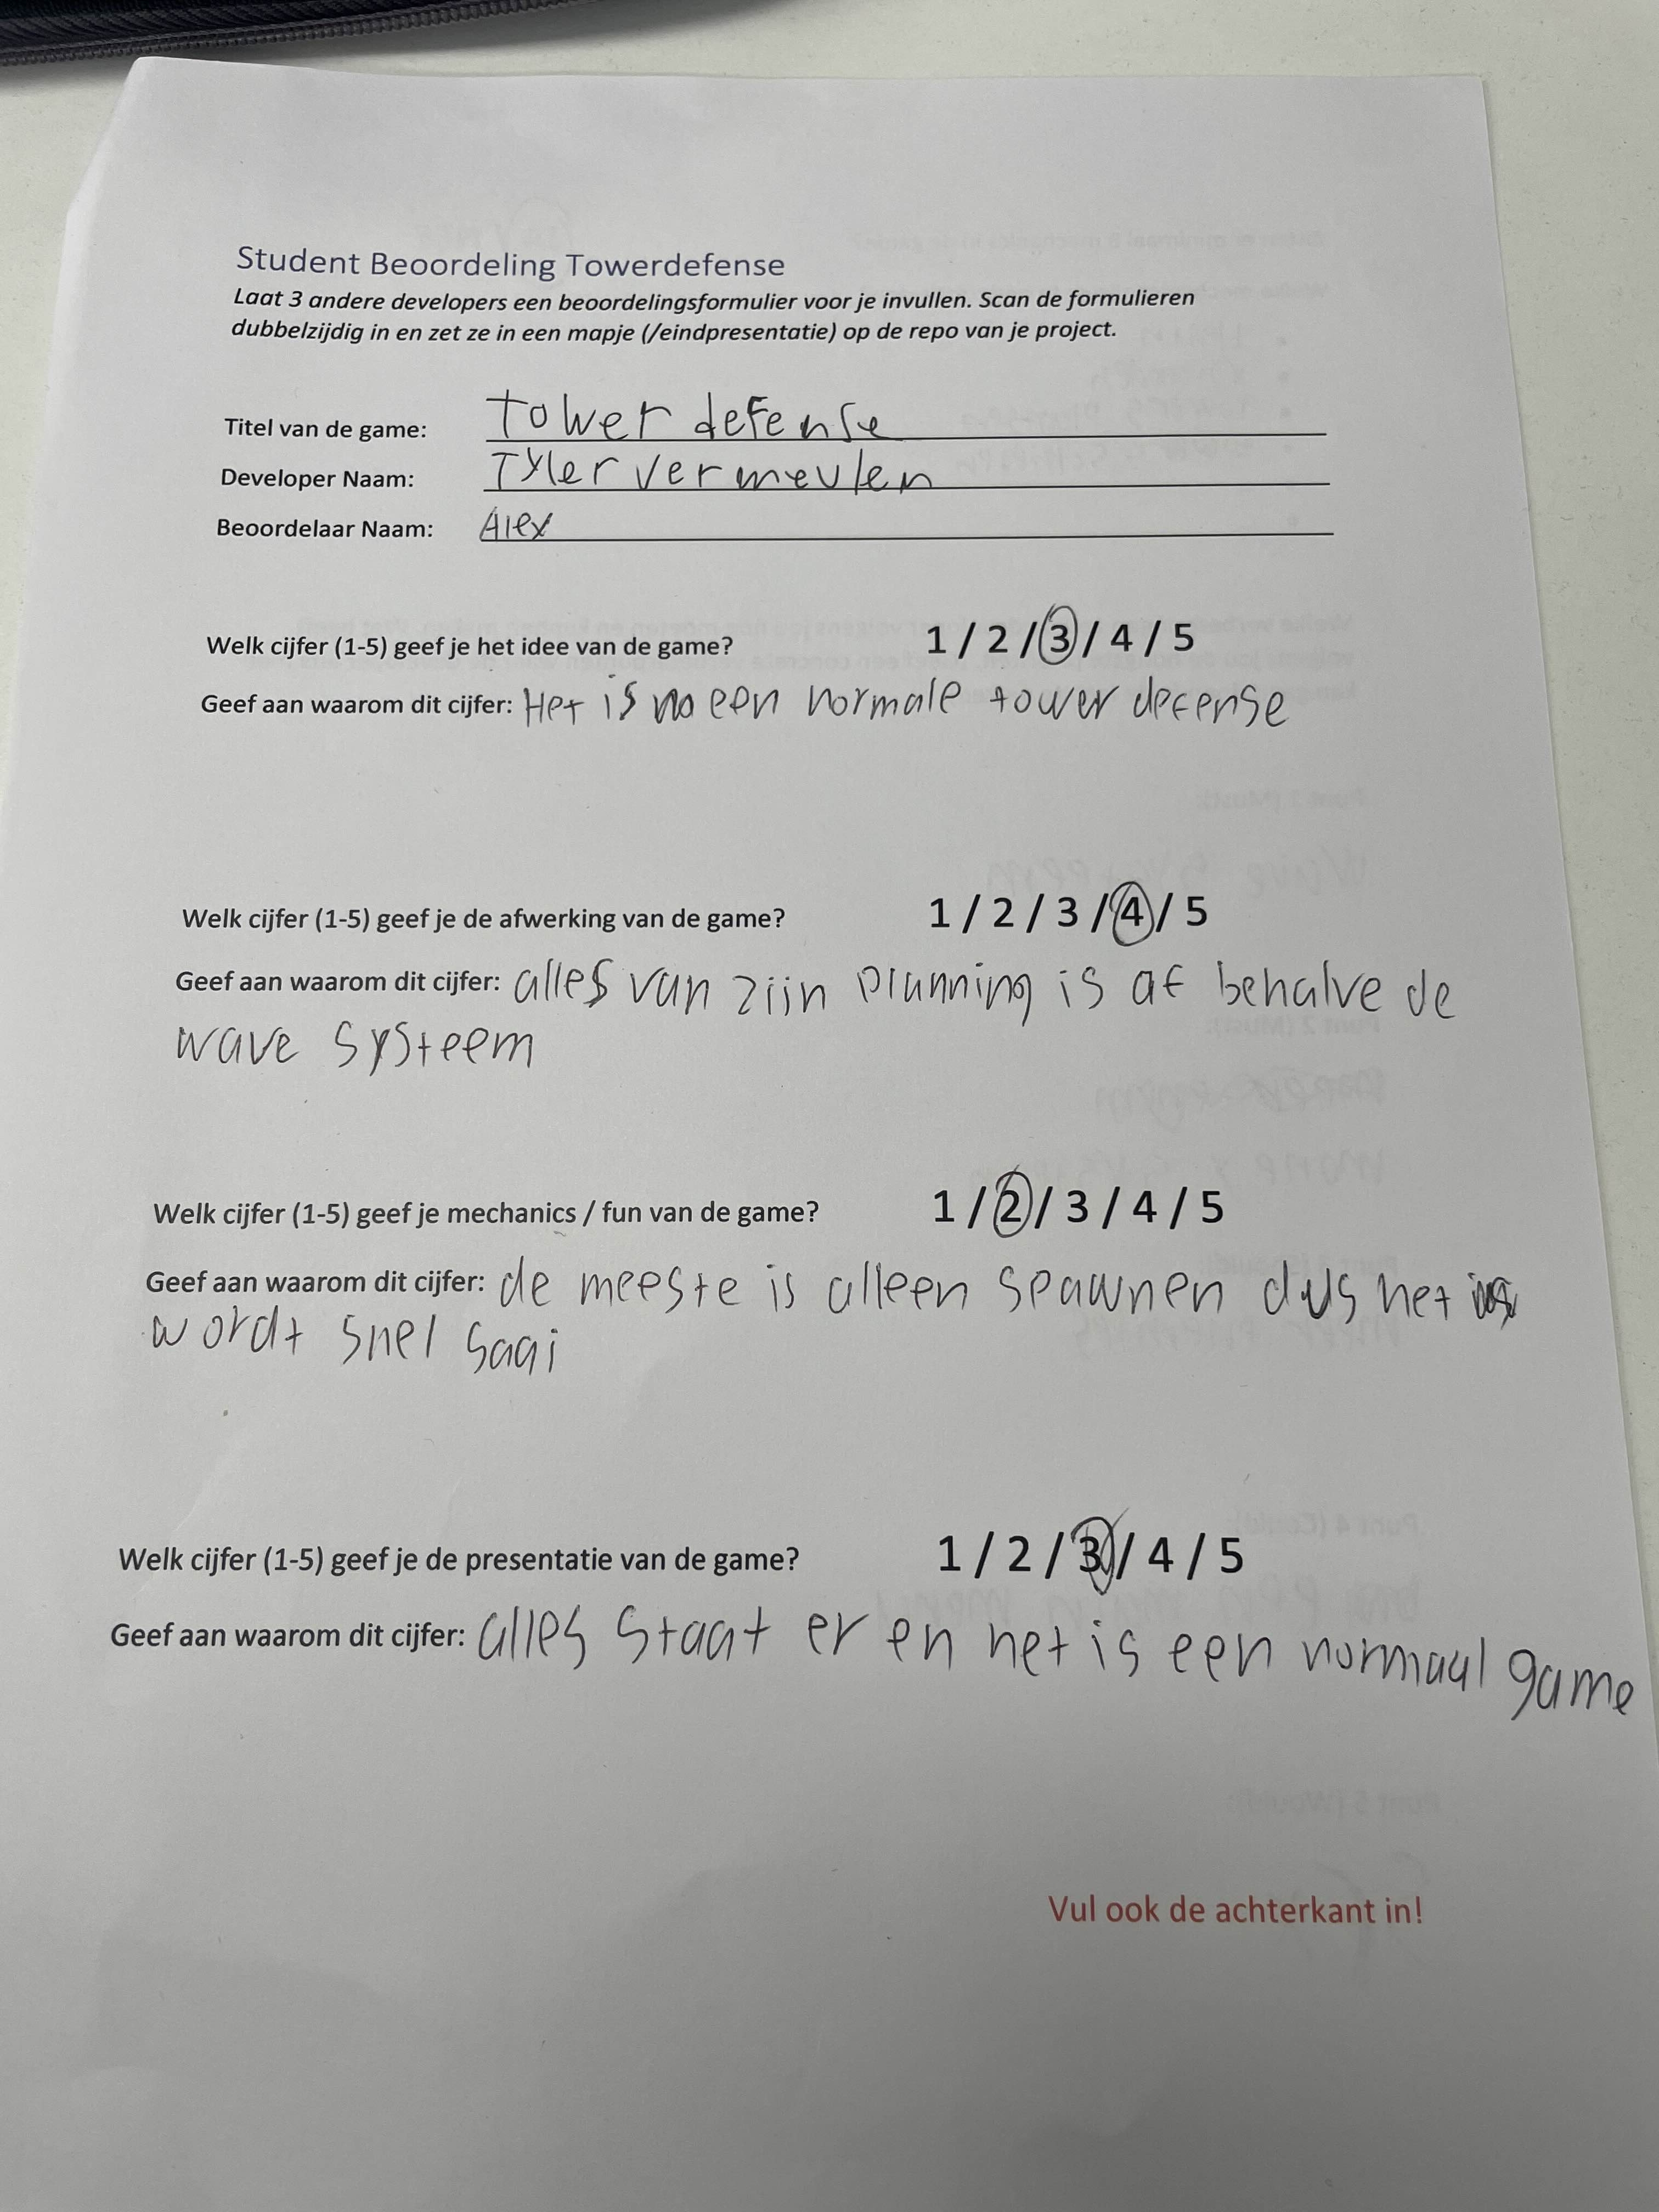 Student Beoordeling Towerdefense
Laat 3 andere developers een beoordelingsformulier voor je invullen. Scan de formulieren
dubbelzijdig in en zet ze in een mapje (/eindpresentatie) op de repo van je project.
Titel van de game: tower defense
Developer Naam: Tyler vermeulen
Beoordelaar Naam: Alex
Welk cijfer (1-5) geef je het idee van de game? 1 / 2 / 3 / 4 / 5
Geef aan waarom dit cijfer: Het is een normale tower defense
Welk cijfer (1-5) geef je de afwerking van de game? 1 / 2 / 3 / 4 / 5
Geef aan waarom dit cijfer: alles van zijn planning is af behalve de
wave systeem
Welk cijfer (1-5) geef je mechanics / fun van de game? 1 / 2 / 3 / 4 / 5
Geef aan waarom dit cijfer: de meeste is alleen spawnen dus het
wordt snel saai
Welk cijfer (1-5) geef je de presentatie van de game? 1 / 2 / 3 / 4 / 5
Geef aan waarom dit cijfer: alles staat er en het is een normaal game
Vul ook de achterkant in!